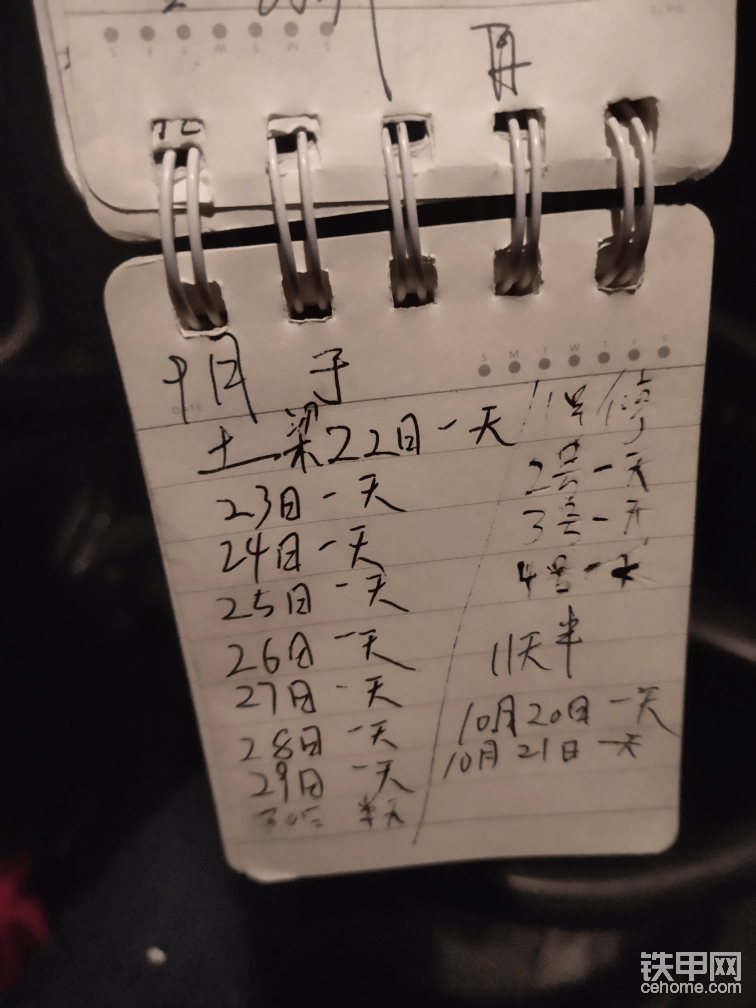 月
9月 于
土梁22日一天
23日一天
24日一天
25日一天
26日一天
27日一天
28日一天
29日一天
30日 半天
1号停
2号一天
3号一天
4号一天
11天半
10月20日一天
10月21日一天
S M T W T F S
铁甲网
cehome.com